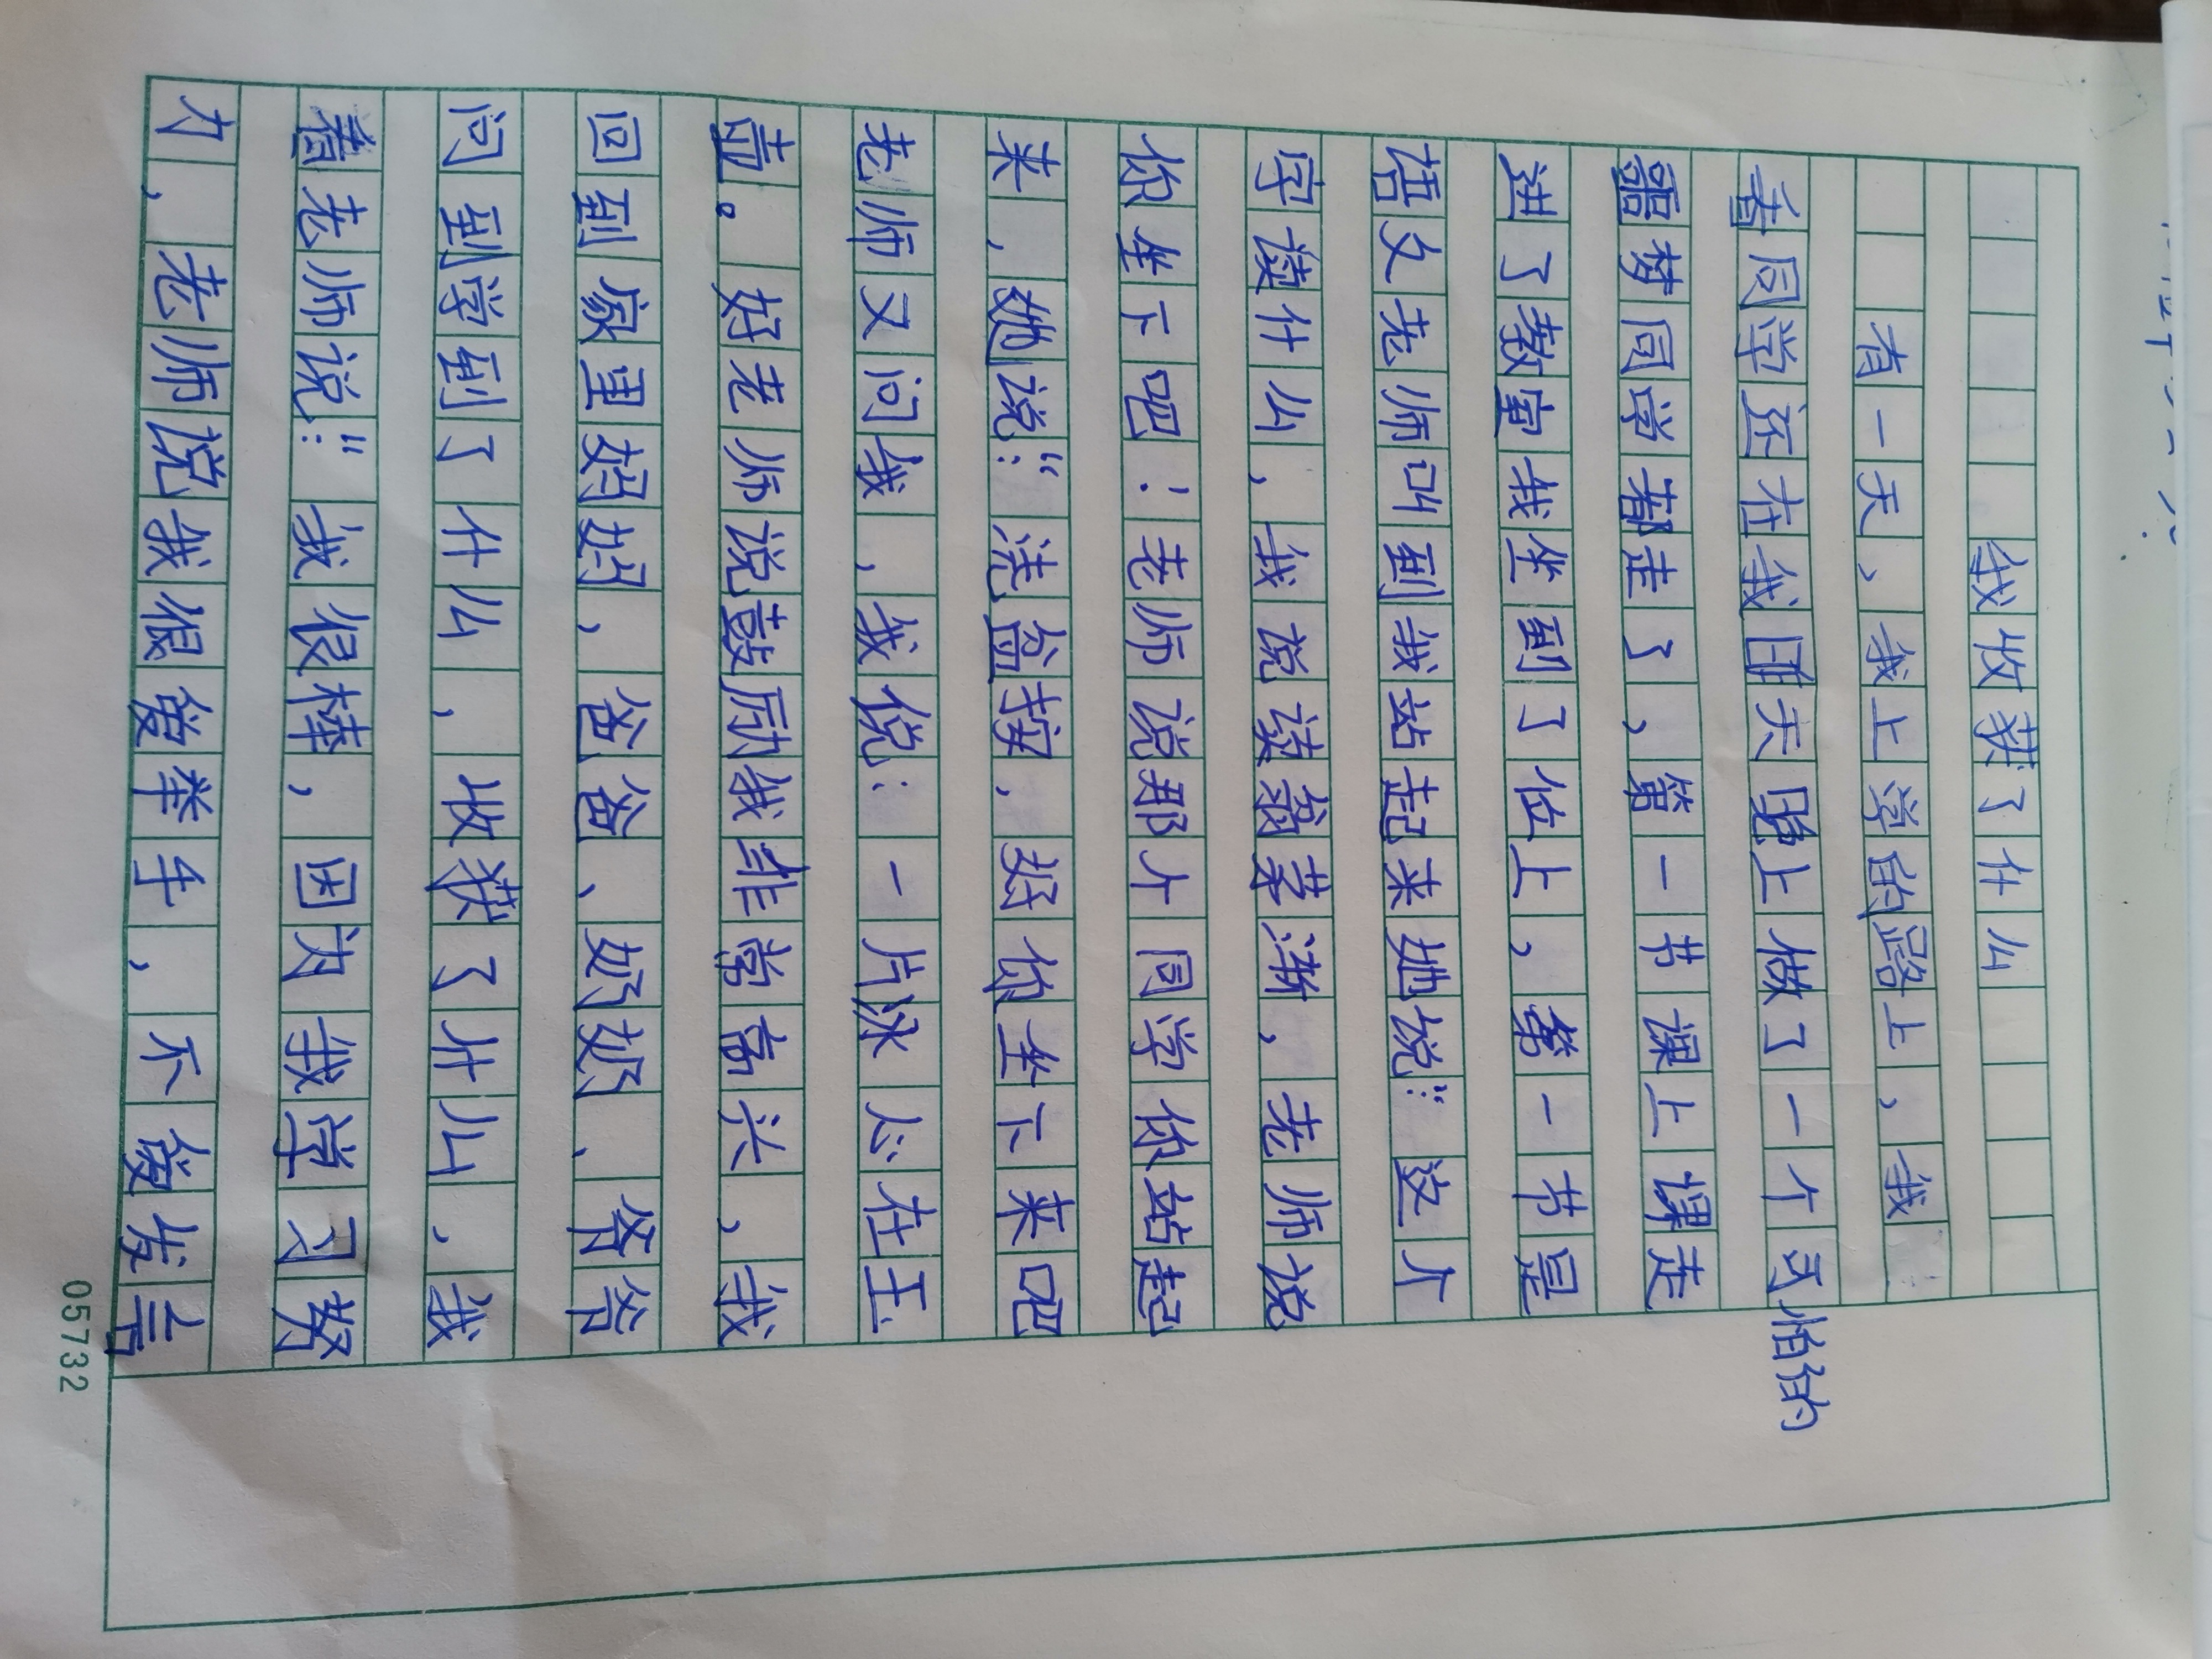 我收获了什么
有一天，我上学的路上，我
着同学还在我昨天晚上做了一个可怕的
噩梦同学都走了，第一节课上课走
进了教室我坐到了位上，第一节是
语文老师叫到我站起来她说：“这个
字读什么，我说读蓊蒙渐，老师说
你坐下吧：老师说那个同学你站起
来，她说：“洗盆接，好你坐下来吧
老师又问我，我说：一片冰心在玉
壶。好老师说鼓励我非常高兴，我
回到家里妈妈，爸爸、奶奶、爷爷
问到学到了什么，收获了什么，我
着老师说：“我很棒，因为我学习努
力，老师说我很爱举手，不爱发言
05732